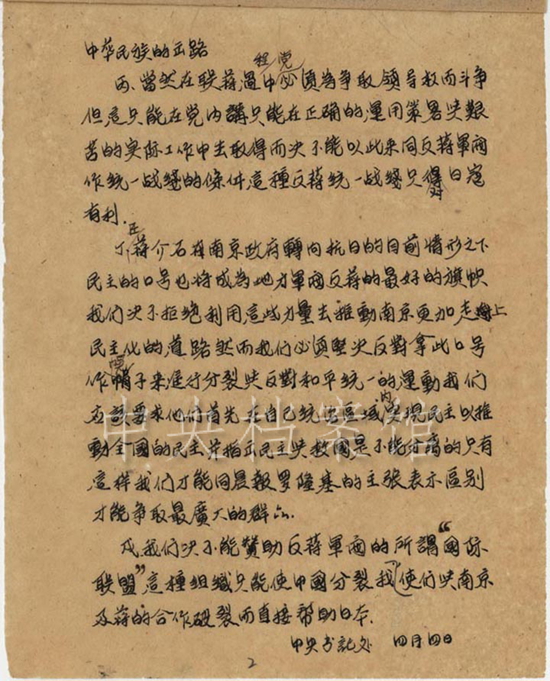 中华民族的出路
丙、当然在联蒋过程中党必须為争取领导权而斗争
但這只能在党内講只能在正确的運用策畧與艱
苦的实际工作中去取得而决不能以此来同反蒋軍阀
作统一战线的條件這種反蒋统一战线只對日寇
有利.
丁、正蒋介石与南京政府轉向抗日的目前情形之下
民主的口号也将成為地方軍阀反蒋的最好的旗帜
我们决不拒绝利用這些力量去推動南京更加走上
民主化的道路然而我们必须坚决反對拿此口号
作帽子来進行分裂與反對和平统一的運動我们
应該要求他们首先在自己统治區域内实现民主以推
動全國的民主并指出民主與救國是不能分离的只有
這样我们才能同晨報罗隆基的主张表示區别
才能争取最廣大的群众.
戊我们决不能贊助反蒋軍阀的所謂“國际
联盟”這種组織只能使中國分裂使们與南京
及蒋的合作破裂而直接帮助日本.
中央书記处 四月四日
2
中央档案馆